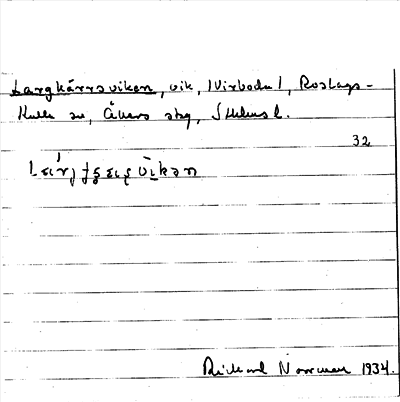 Largkärrsviken, vik, (Virboda), Roslags-
Kulla sn, Åkers skg, Sthlms l.
32
Rickard Norrman 1934.